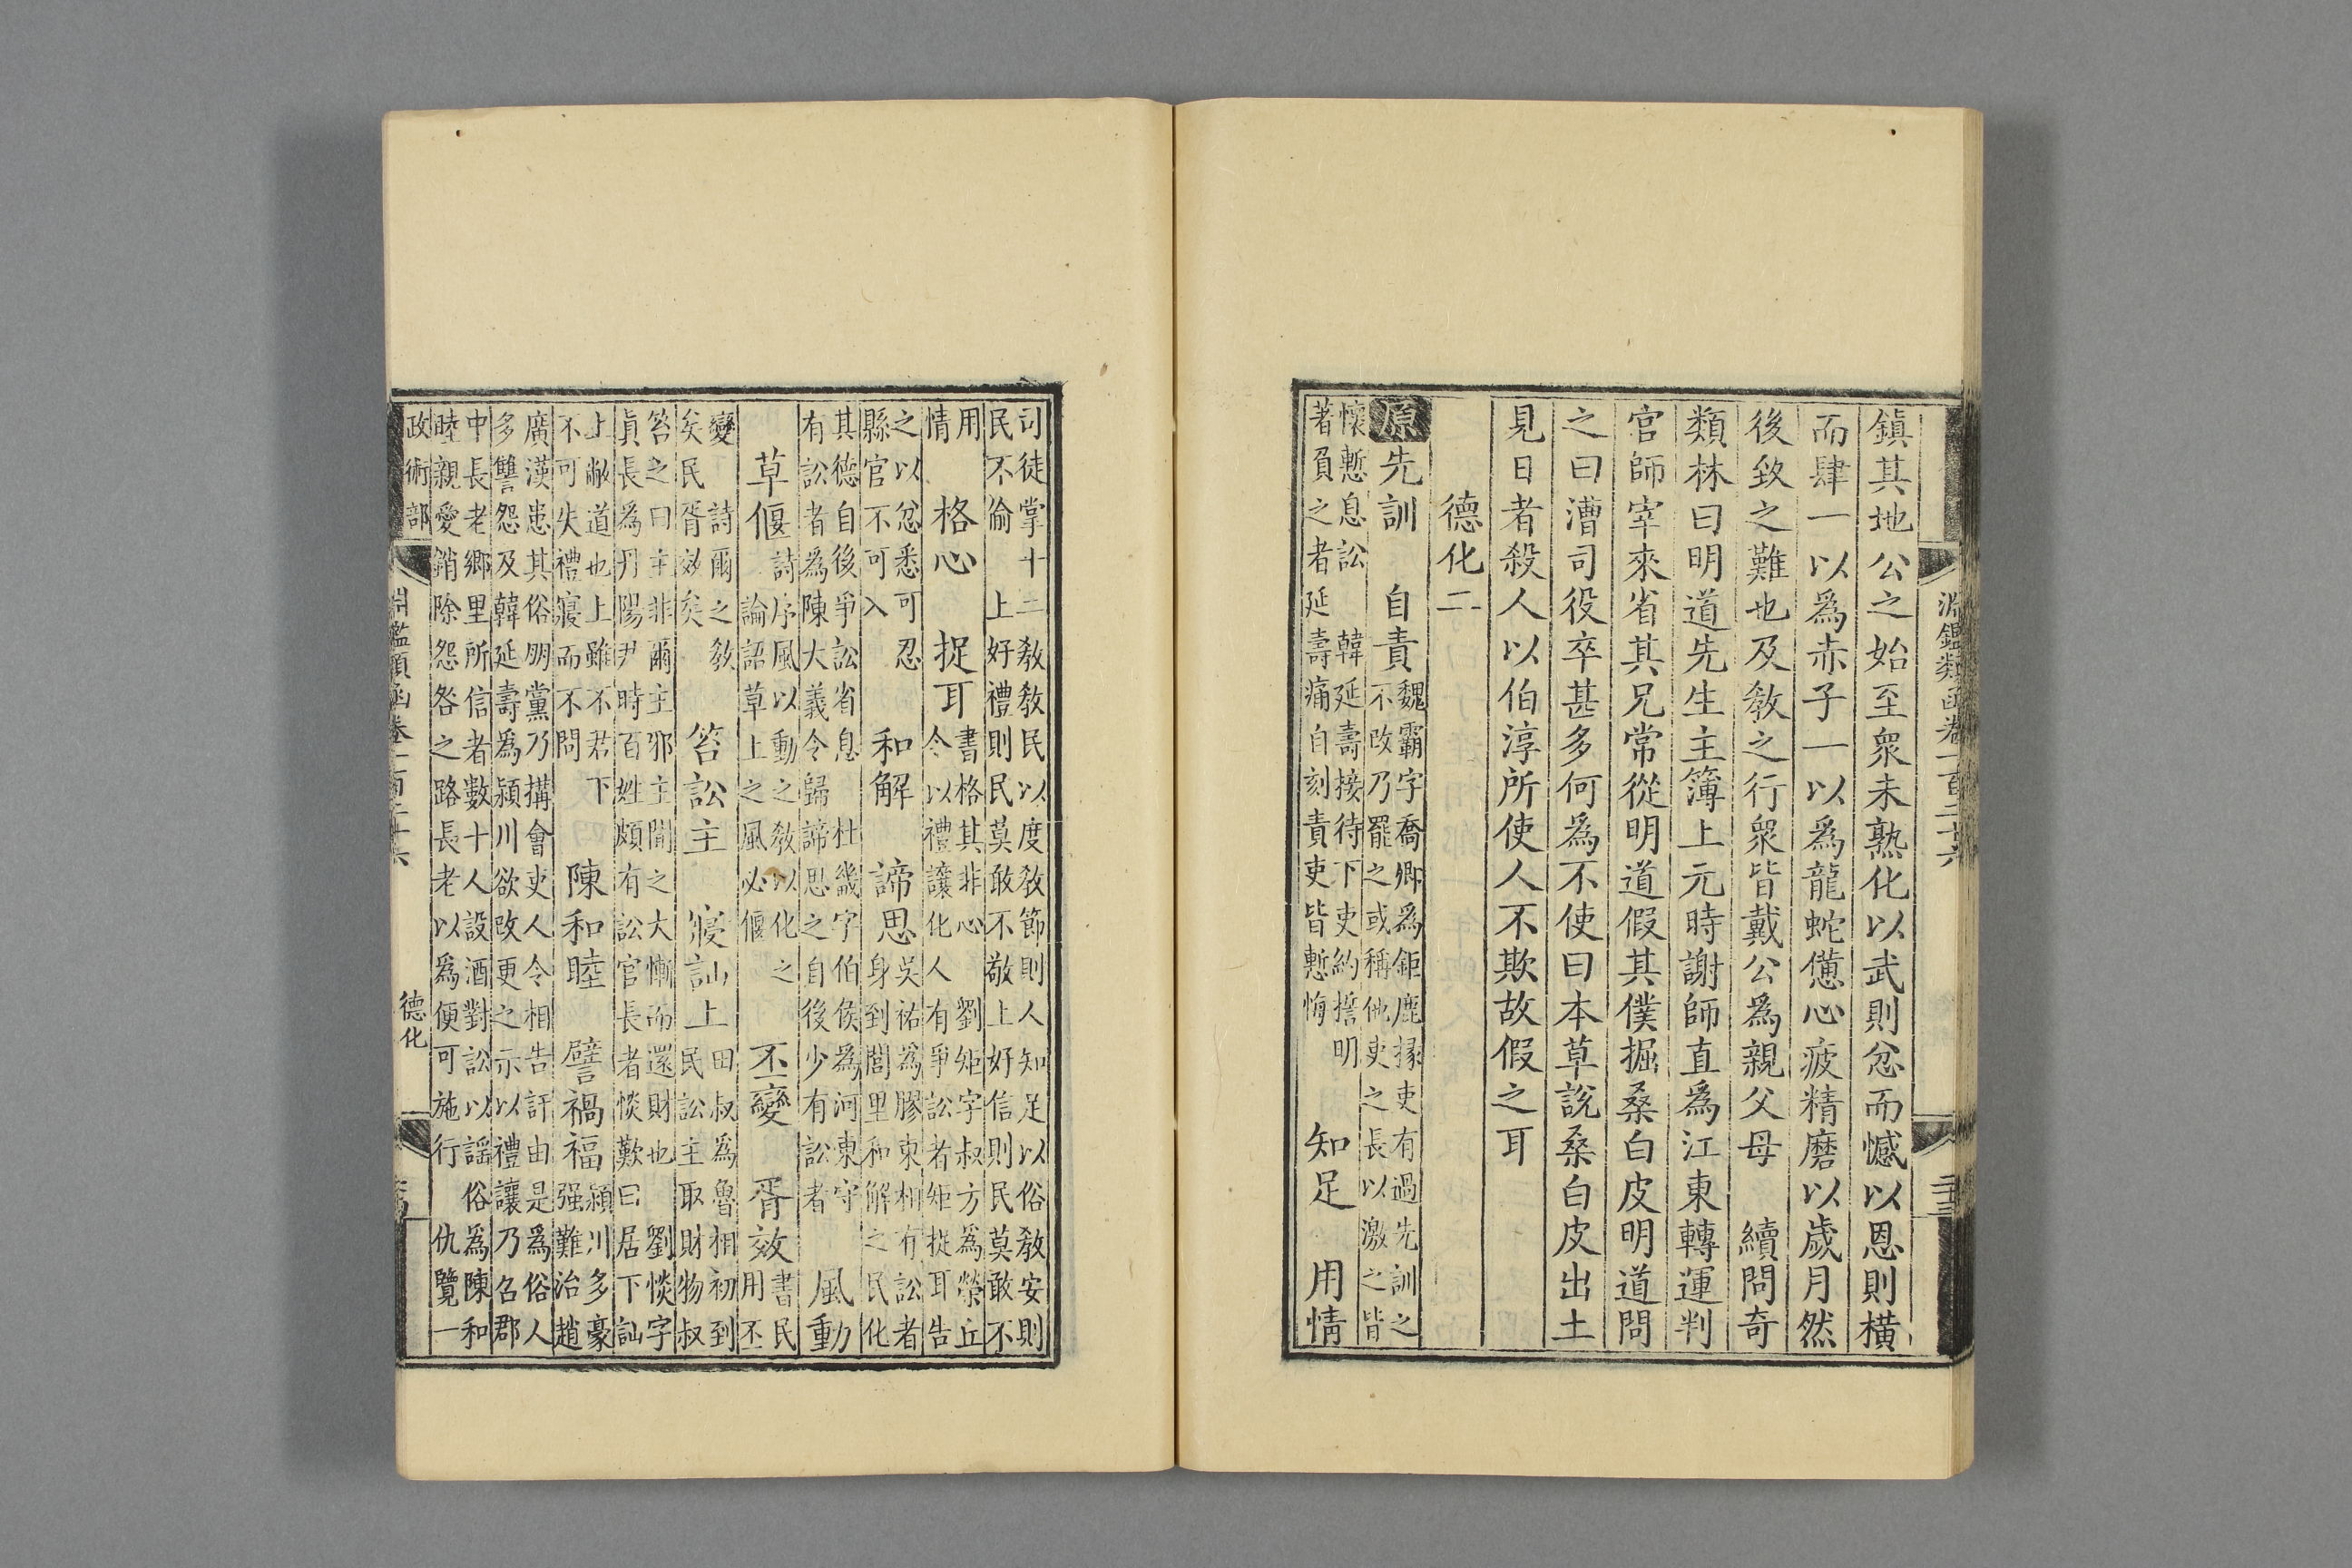 淵鑑類函卷一百二十六
二十三
鎮其地公之始至衆未熟化以武則忿而憾以恩則橫
而肆一以為赤子一以為龍蛇憊心疲精磨以歲月然
後致之難也及敎之行衆皆戴公為親父母　續問奇
類林曰明道先生主簿上元時謝師直為江東轉運判
官師宰來省其兄常從明道假其僕掘桑白皮明道問
之曰漕司役卒甚多何為不使曰本草說桑白皮出土
見日者殺人以伯淳所使人不欺故假之耳
德化二
原先訓　自責
魏霸字喬卿為鉅鹿掾吏有過先訓之
不改乃罷之或稱他吏之長以激之皆
懷慙息訟　韓延壽接待下吏約誓明
著負之者延壽痛自刻責吏皆慙悔
知足　用情
司徒掌十二敎敎民以度敎節則人知足以俗敎安則
民不偷　上好禮則民莫敢不敬上好信則民莫敢不
用
情
格心　捉耳
書格其非心　劉矩字叔方為滎丘
令以禮讓化人有爭訟者矩捉耳告
之以忿恚可忍
縣官不可入
和解　諦思
吳祐為膠東相有訟者
身到閭里和解之民化
其德自後爭訟省息　杜畿字伯侯為河東守
有訟者為陳大義令歸諦思之自後少有訟者
風動
草偃
詩序風以動之敎以化之
論語草上之風必偃
丕變　胥效
書民
用丕
變　詩爾之敎
矣民胥效矣
笞訟主　寢訕上
田叔為魯相初到
民訟主取財物叔
笞之曰主非爾主邪主聞之大慚而還財也　劉惔字
眞長為丹陽尹時百姓頗有訟官長者惔歎曰居下訕
上敝道也上雖不君下
不可失禮寢而不問
陳和睦　譬禍福
潁川多豪
强難治趙
廣漢患其俗朋黨乃搆會吏人令相告訐由是為俗人
多讐怨及韓延壽為潁川欲改更之示以禮讓乃召郡
中長老鄉里所信者數十人設酒對訟以謡俗為陳和
睦親愛銷除怨咎之路長老以為便可施行　仇覽一
政術部
淵鑑類函卷一百二十六
德化